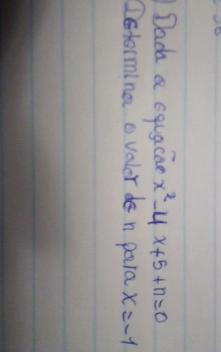 ) Dada a equação x² - 4x + 5 + n = 0
Determina o valor de n para x = -1